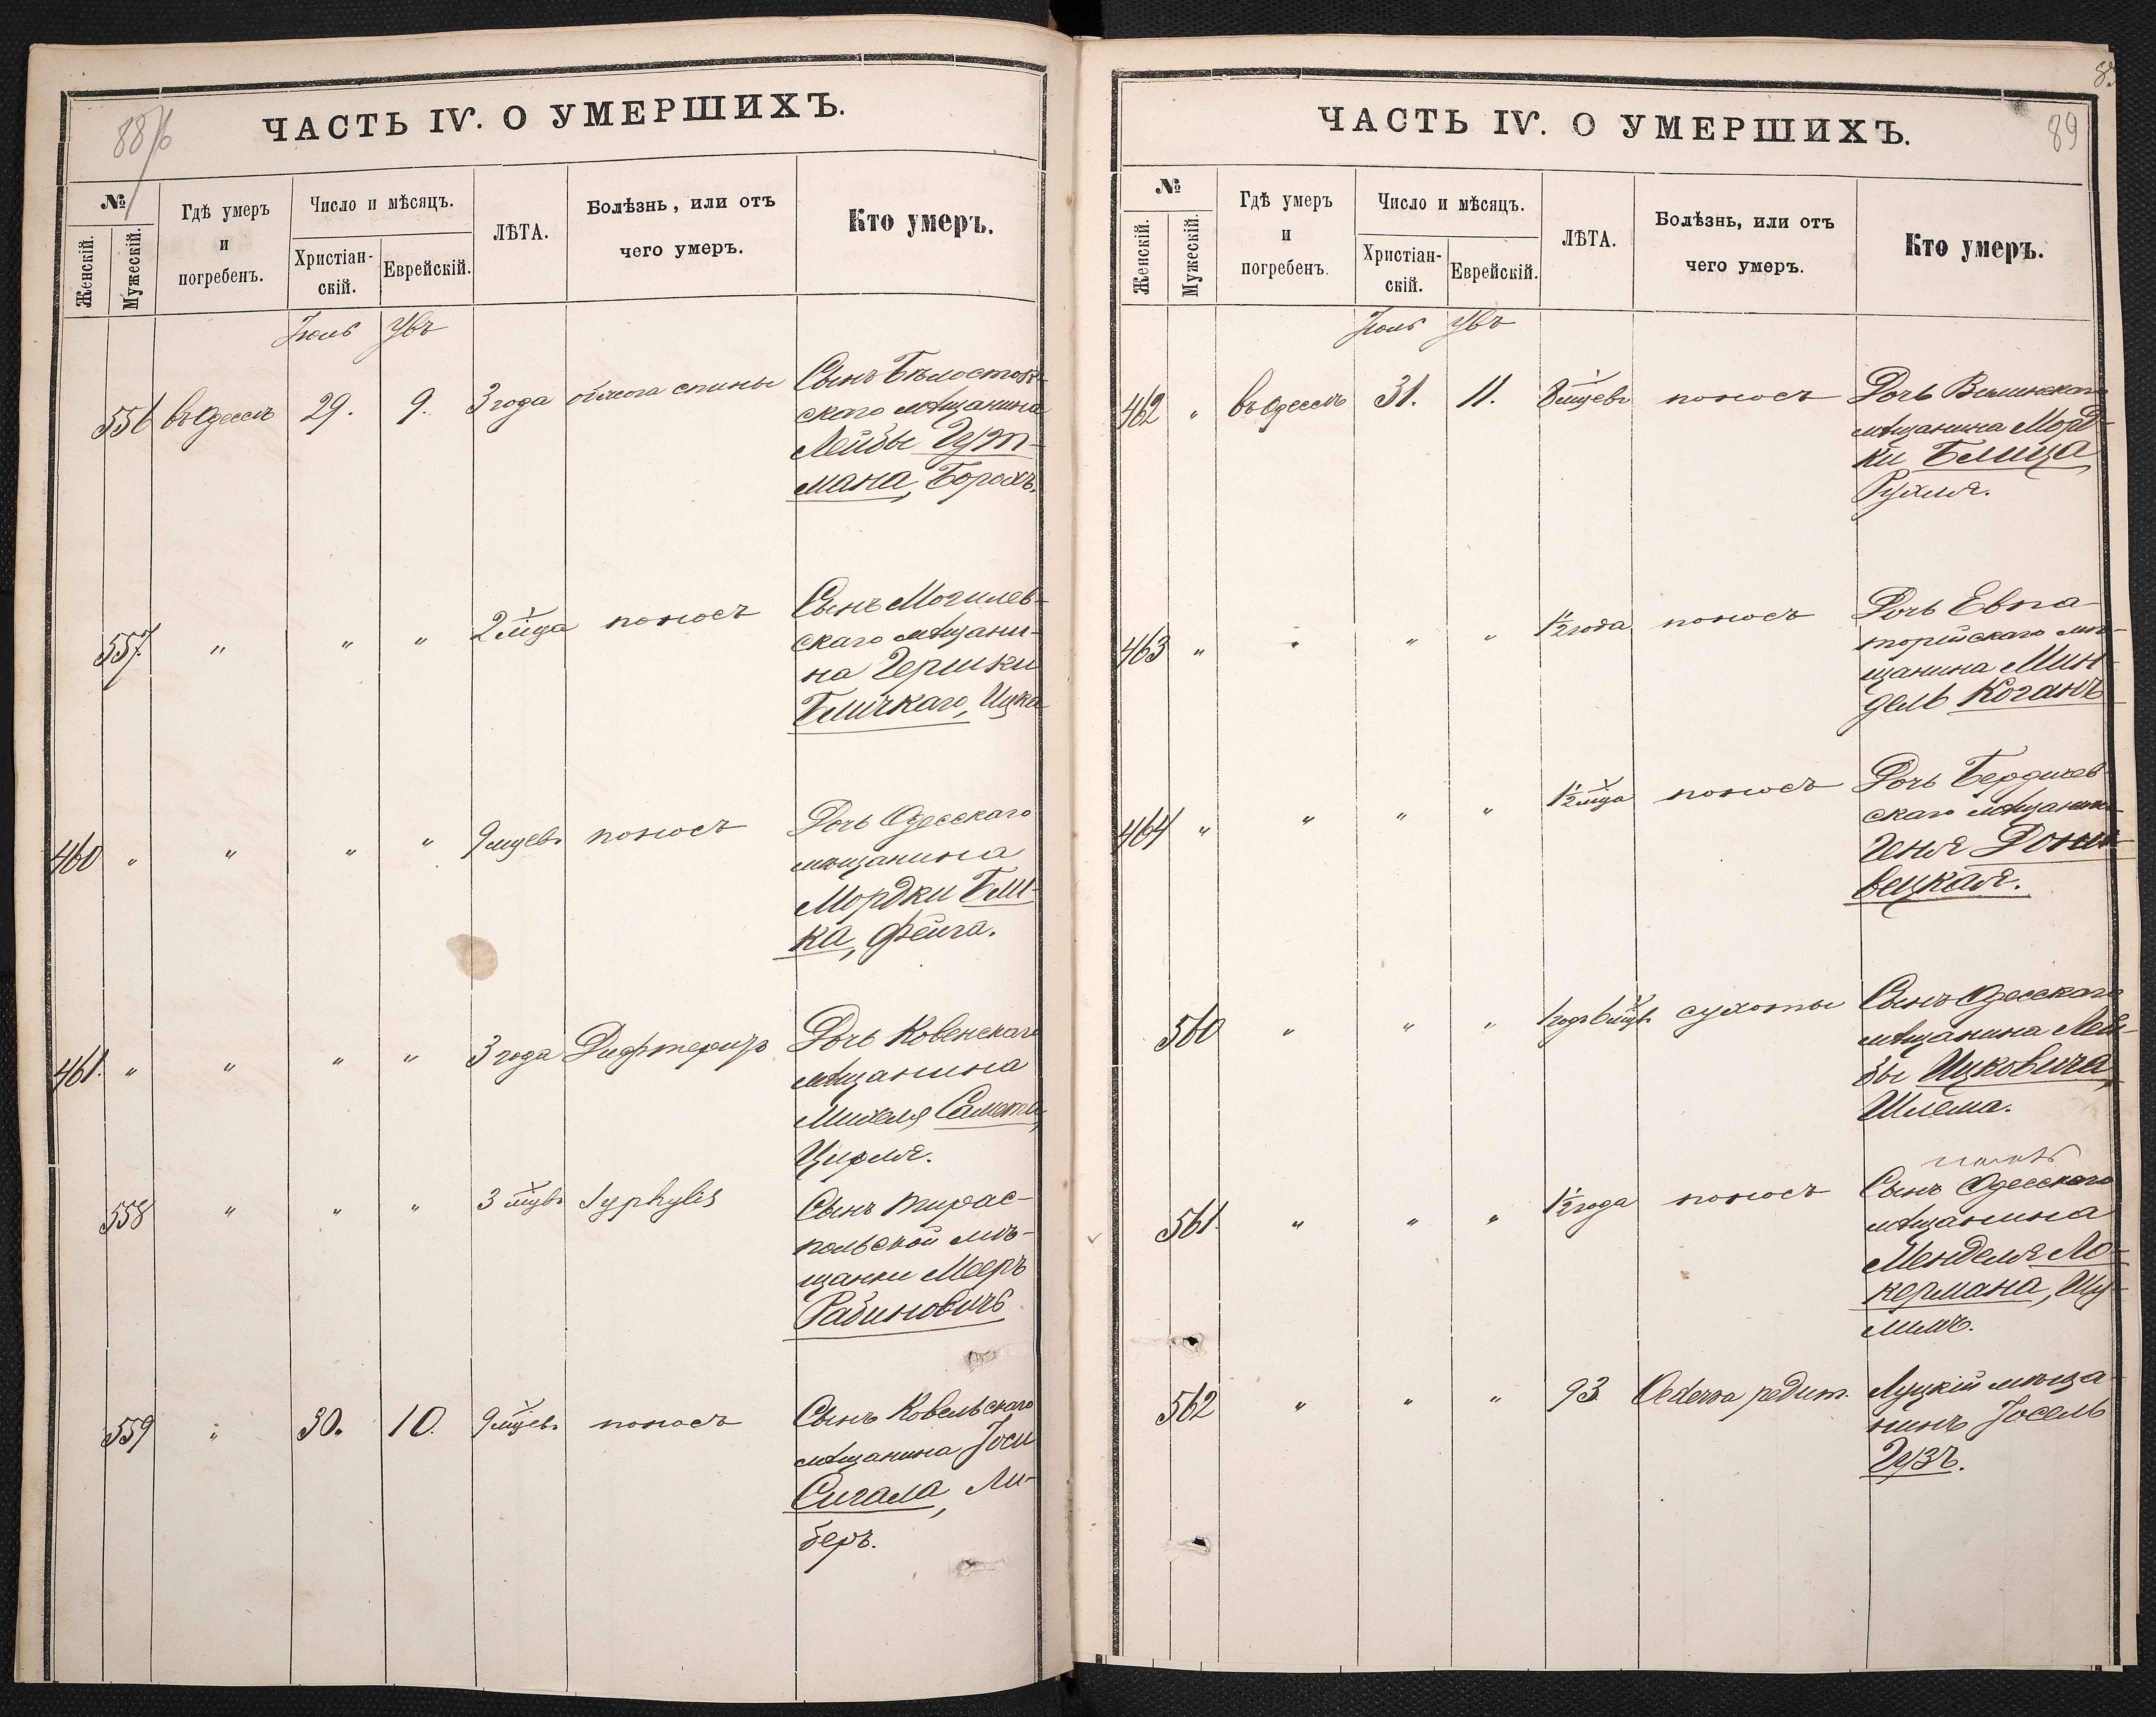 88/б
ЧАСТЬ IV. О УМЕРШИХЪ.
№
Женскій.
Мужескій.
Гдѣ умеръ
и
погребенъ.
Число и мѣсяцъ.
Христіан-
скій.
Еврейскій.
ЛѢТА.
Болѣзнь, или отъ
чего умеръ.
Кто умеръ.
Іюль
556 въ Одессѣ 29. 9. 3 года спины
Сынъ Бѣлосток-
скаго мѣщанина
Лейбы Гут-
мана, Борохъ.
557. " " " 2 м̅ца поносъ
Сынъ Могилев-
скаго мѣщани-
на Гершки
Бличкаго, Ицка
460 " " " " 9 мцевъ поносъ
Дочь Одесскаго
мѣщанина
Мордки Бли-
ка, Фейга.
461. " " " " 3 года Дифтеритъ
Дочь Ковенскаго
мѣщанина
Михеля
Цирля.
558 " " " 3 мцвъ Syphylis
Сынъ Тирас-
польской мѣ-
щанки Мееръ
Рабиновичъ
559 " 30. 10. 9 мцевъ поносъ
Сынъ Ковельскаго
мѣщанина Іоси
Сигала, Ли-
беръ.
89
ЧАСТЬ IV. О УМЕРШИХЪ.
№
Женскій.
Мужескій.
Гдѣ умеръ
и
погребенъ.
Число и мѣсяцъ.
Христіан-
скій.
Еврейскій.
ЛѢТА.
Болѣзнь, или отъ
чего умеръ.
Кто умеръ.
Іюль
462 " въ Одессѣ 31. 11. 8 мцевъ поносъ
Дочь Виленскаго
мѣщанина Морд-
ки Блица,
Рухля.
463 " " " " 1½ года поносъ
Дочь Евпа-
торійскаго мѣ-
щанина Мин-
дель Коганъ
464 " " " " 1½ мца поносъ
Дочь Бердичев-
скаго мѣщанина
Геня
вецкая.
560 " " " 1 годъ 6 мцвъ сухоты
Сынъ Одесскаго
мѣщанина Лей-
бы Ицковича,
Шлема.
561. " " " 1½ года поносъ
Сынъ Одесскаго
мѣщанина
Менделя Ло-
кермана, Шу-
лимъ.
562 " " " 93 Oedema pedum.
Луцкій мѣща-
нинъ Іосель
Гузъ.